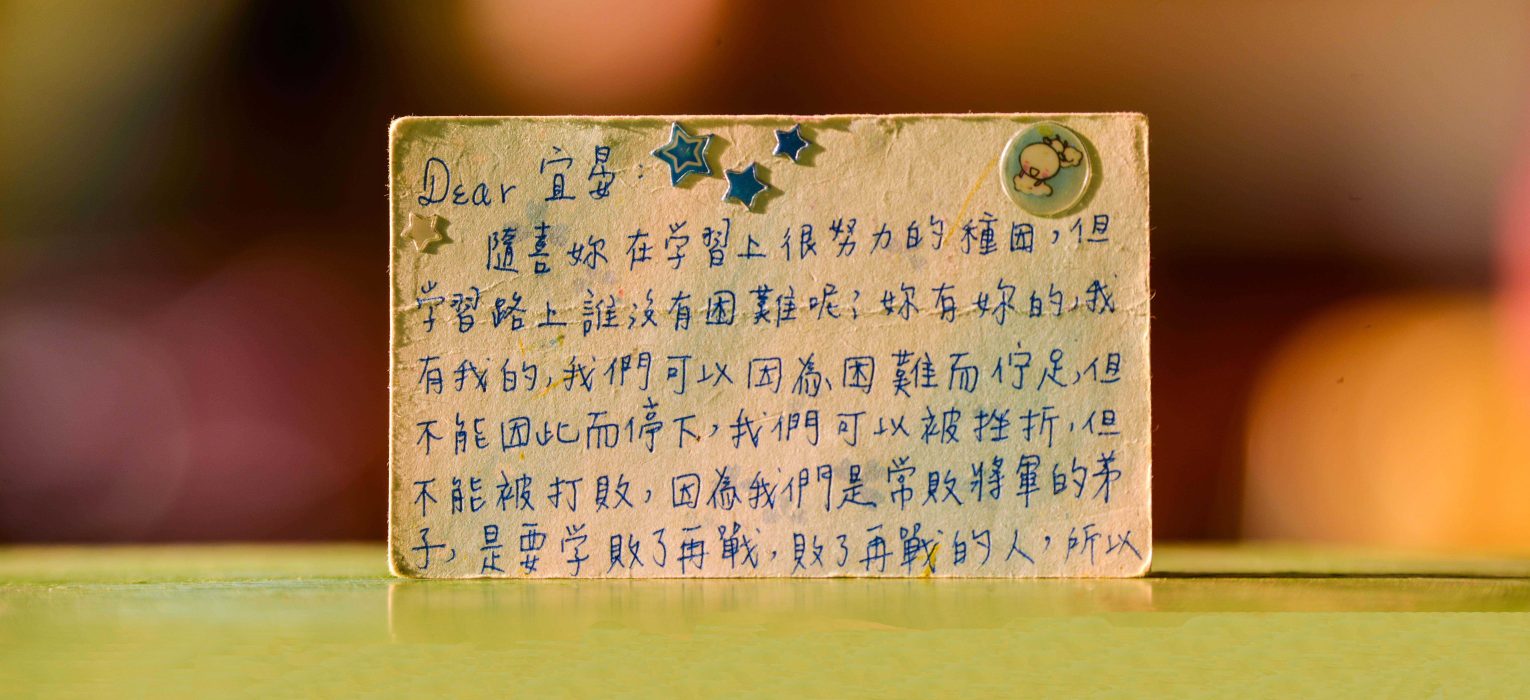 Dear 宜晏:
隨喜妳在学習上很努力的種因，但
学習路上誰沒有困難呢？妳有妳的，我
有我的，我們可以因為困難而佇足，但
不能因此而停下，我們可以被挫折，但
不能被打敗，因為我們是常敗將軍的弟
子，是要学敗了再戰，敗了再戰的人，所以